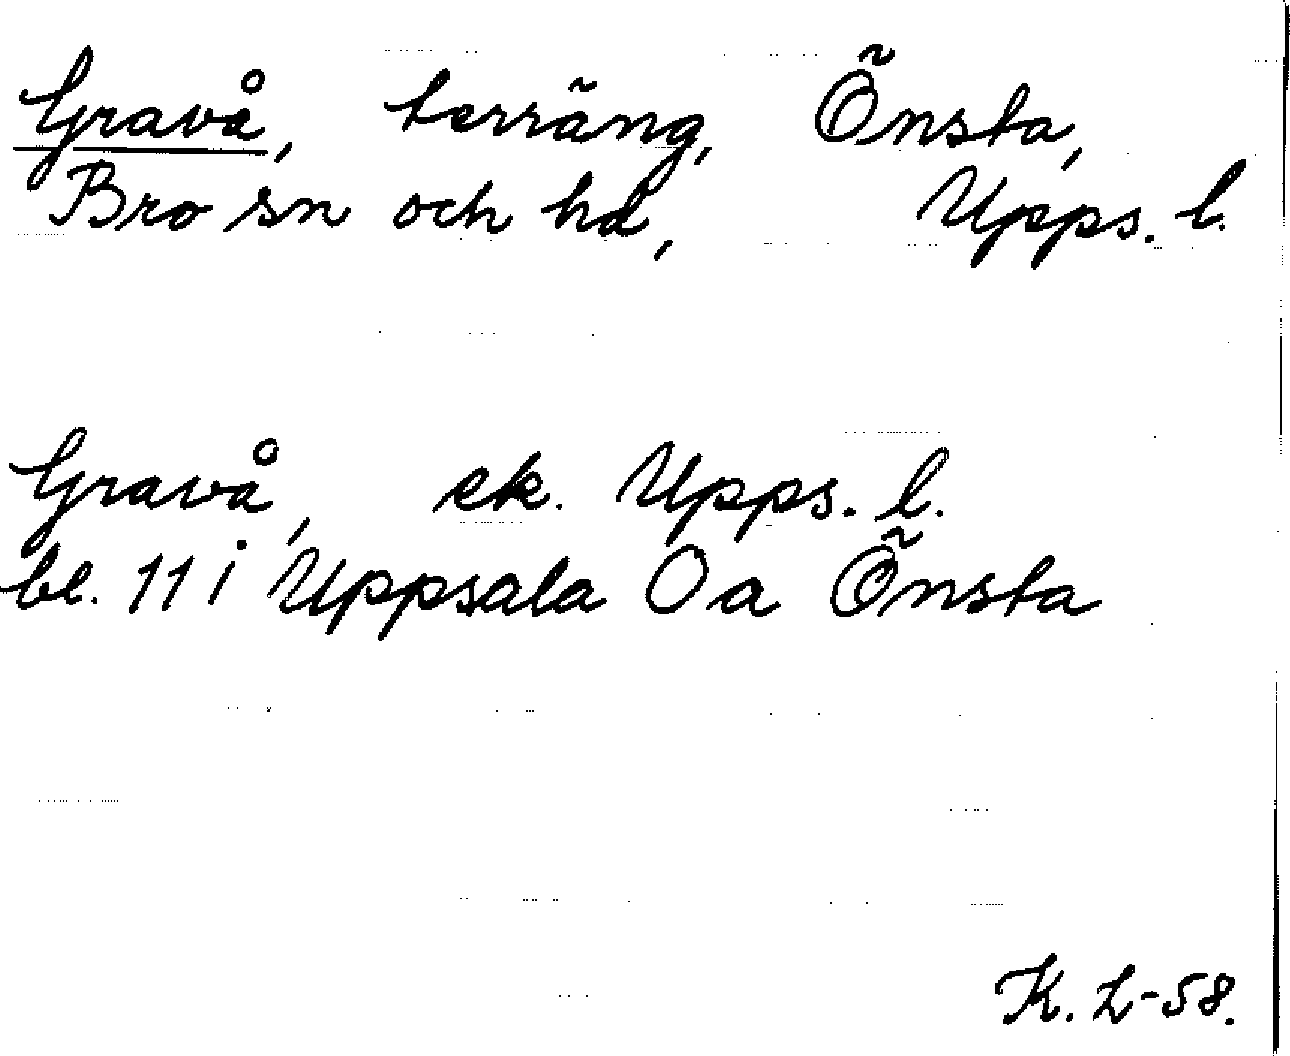 Gravå, terräng, Önsta,
Bro sn och hd, Upps. l.
Gravå, ek. Upps. l.
bl. 11 i Uppsala Oa Önsta
K. L-58.